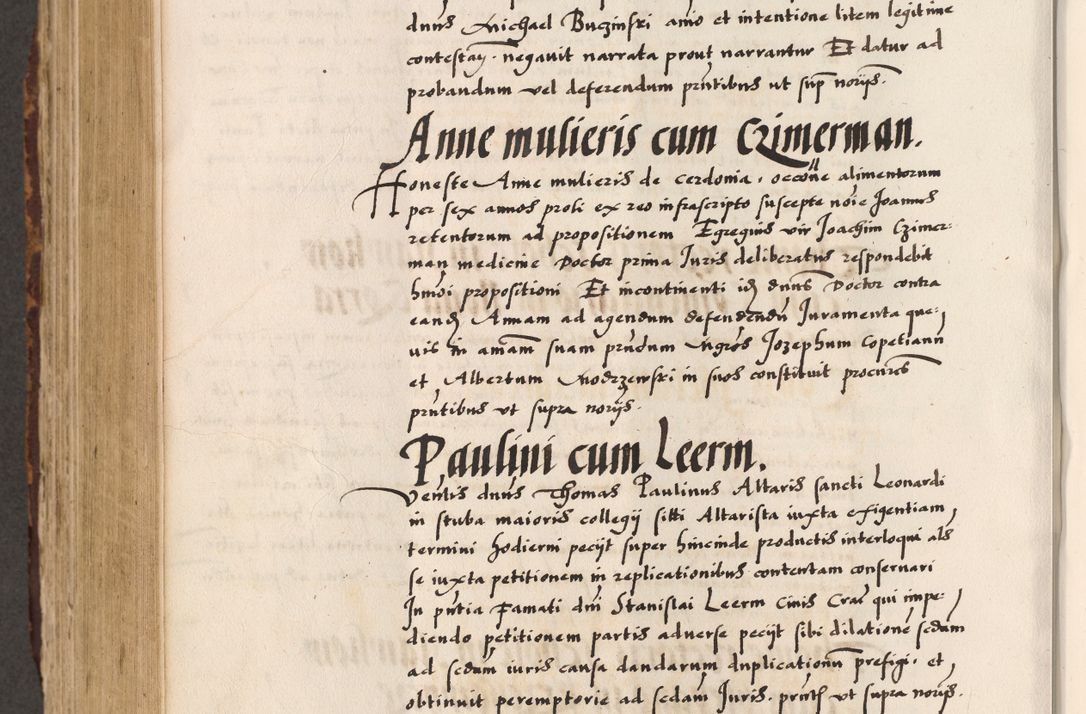 dnus Michael Buczinski amio et intentione litem legitime
contestan. negavit narrata prout narrantur Et datur ad
probandum vel deferendum pntibus ut sup norijs.
Anne mulieris cum Czimerman.
Honeste Anne mulieris de Cerdonia, occone alimentorum
per sex annos proli ex reo infrascripto suscepte noie Joannis
retentorum ad propositionem Egregius vir Joachim Czimer-
man medicine Doctor prima Juris deliberatus respondebit
hmoi propositioni Et incontinenti id dnus Doctor contra
eand Annam ad agendum defendendu Juramenta que-
vis in amam suam prndum Mgros Jozephum Copetianu
et Albertum Modrzewski in suos constituit procures
pntibus vt supra norijs.
Paulini cum Leerm.
Venlis dnus Thomas Paulinus Altaris sancti Leonardi
in stuba maioris collegij siti Altarista iuxta exigentiam
termini hodierni pecijt super hincinde productis interloqui als
se iuxta petitionem in replicationibus contentam conservari
In pntia Famati dni Stanislai Leerm Civis Crac qui impe-
diendo petitionem partis adverse pecijt sibi dilatione scdum
ad scdam iuris causa dandarum duplicationu prefigi. et
obtinuit peremptorie ad scdam Juris. pntib vt supra norijs.